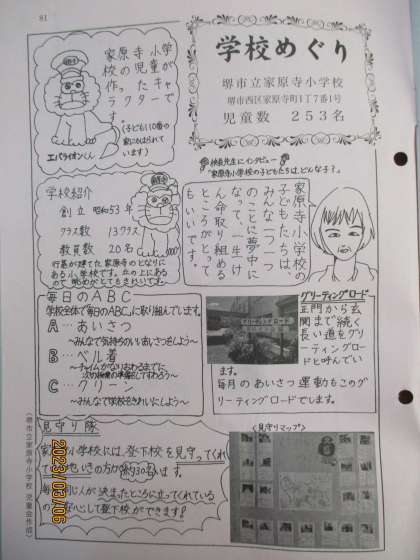 81
学校めぐり
堺市立家原寺小学校
堺市西区家原寺町1丁7番1号
児童数 253名
家原寺小学
校の児童が
作ったキャ
ラクターで
す。
(子ども110番の
家にはられて
います)
エバライオンくん
校長先生にインタビュー
「家原寺小学校の子どもたちは、どんな子?」
家原寺小学校の
子どもたちは、
みんな一つ一つ
のことに夢中に
なって、一生け
ん命取り組める
ところがとって
もいいです。
学校紹介
創立 昭和53年
クラス数 13クラス
教員数 20名
行基が建てた家原寺のとなりに
ある小学校です。丘の上にある
毎日のABC
学校全体で「毎日のABC」に取り組んでいます。
A…あいさつ
〜みんなで気持ちのいいあいさつをしよう〜
B…ベル着
C…クリーン
〜みんなで学校をきれいにしよう〜
グリーティングロード
正門から玄
関まで続く
長い道をグリ
ーティングロー
ドと呼んでい
ます。
毎月のあいさつ運動もこのグ
リーティングロードでします。
グリーティングロード
見守り隊
小学校には、登下校を見守ってくれ
地いきの方が約30名います。
人が決まったところに立ってくれている
心して登下校ができます!
〈見守りマップ〉
(堺市立家原寺小学校 児童会作成)
2023/03/06